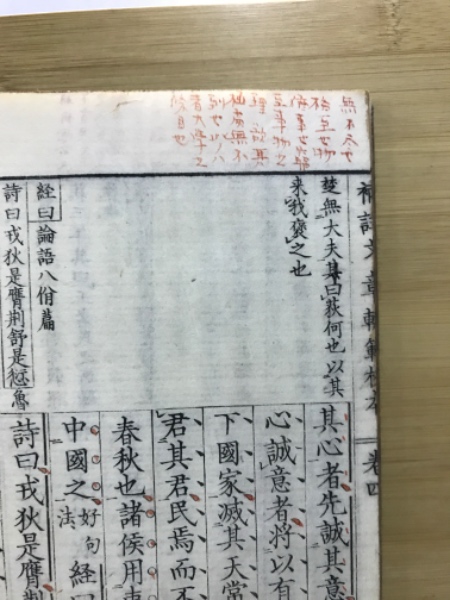 無不尽也
格至也物
猶事也窮
至事物之
理欲其
極處無不
到也此八
者大學之
條目也
補註文章軌範校本 卷四
楚無大夫其曰荻何也以其
來我褒之也
経曰論語八佾篇
詩曰戎狄是膺荊舒是懲魯
其心者先誠其意
心誠意者將以有
下國家滅其天常
君其君民焉而不
春秋也諸侯用
中國之
好句
法
經曰
詩曰戎狄是膺